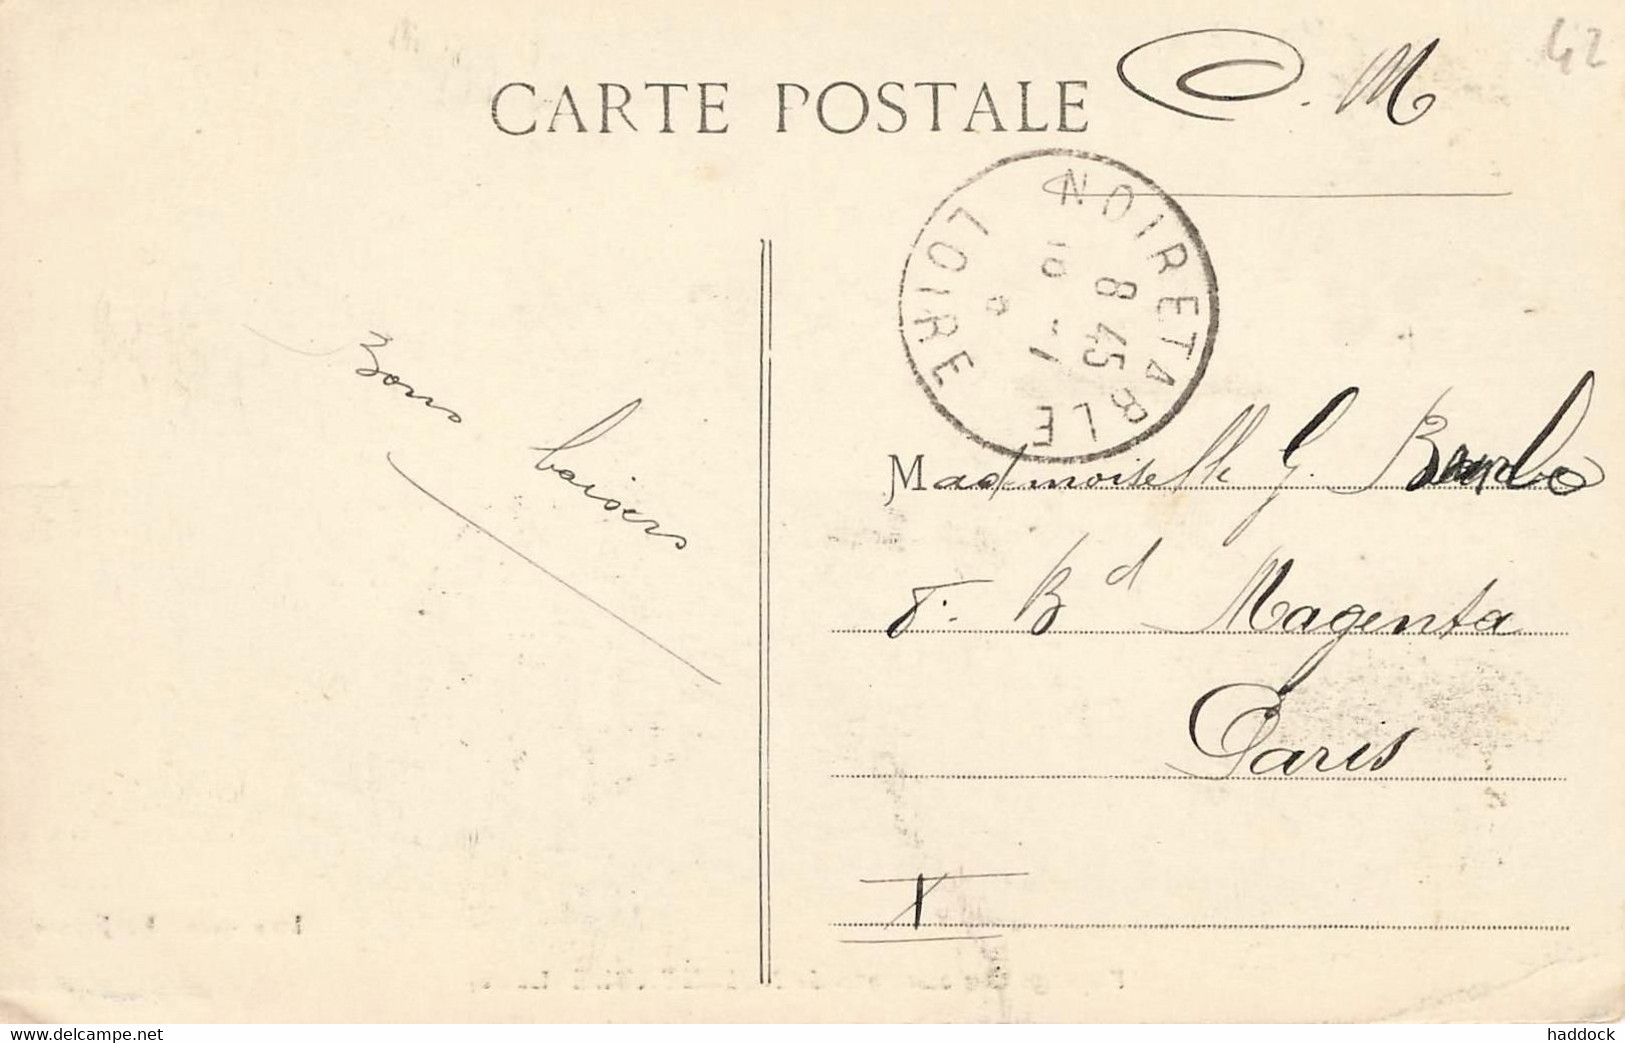 CARTE POSTALE
O. M
42
NOIRETABLE
LOIRE
8 45
Bons baisers
Mademoiselle G.
8. Bd Magenta
Paris
X
www.delcampe.net
haddock